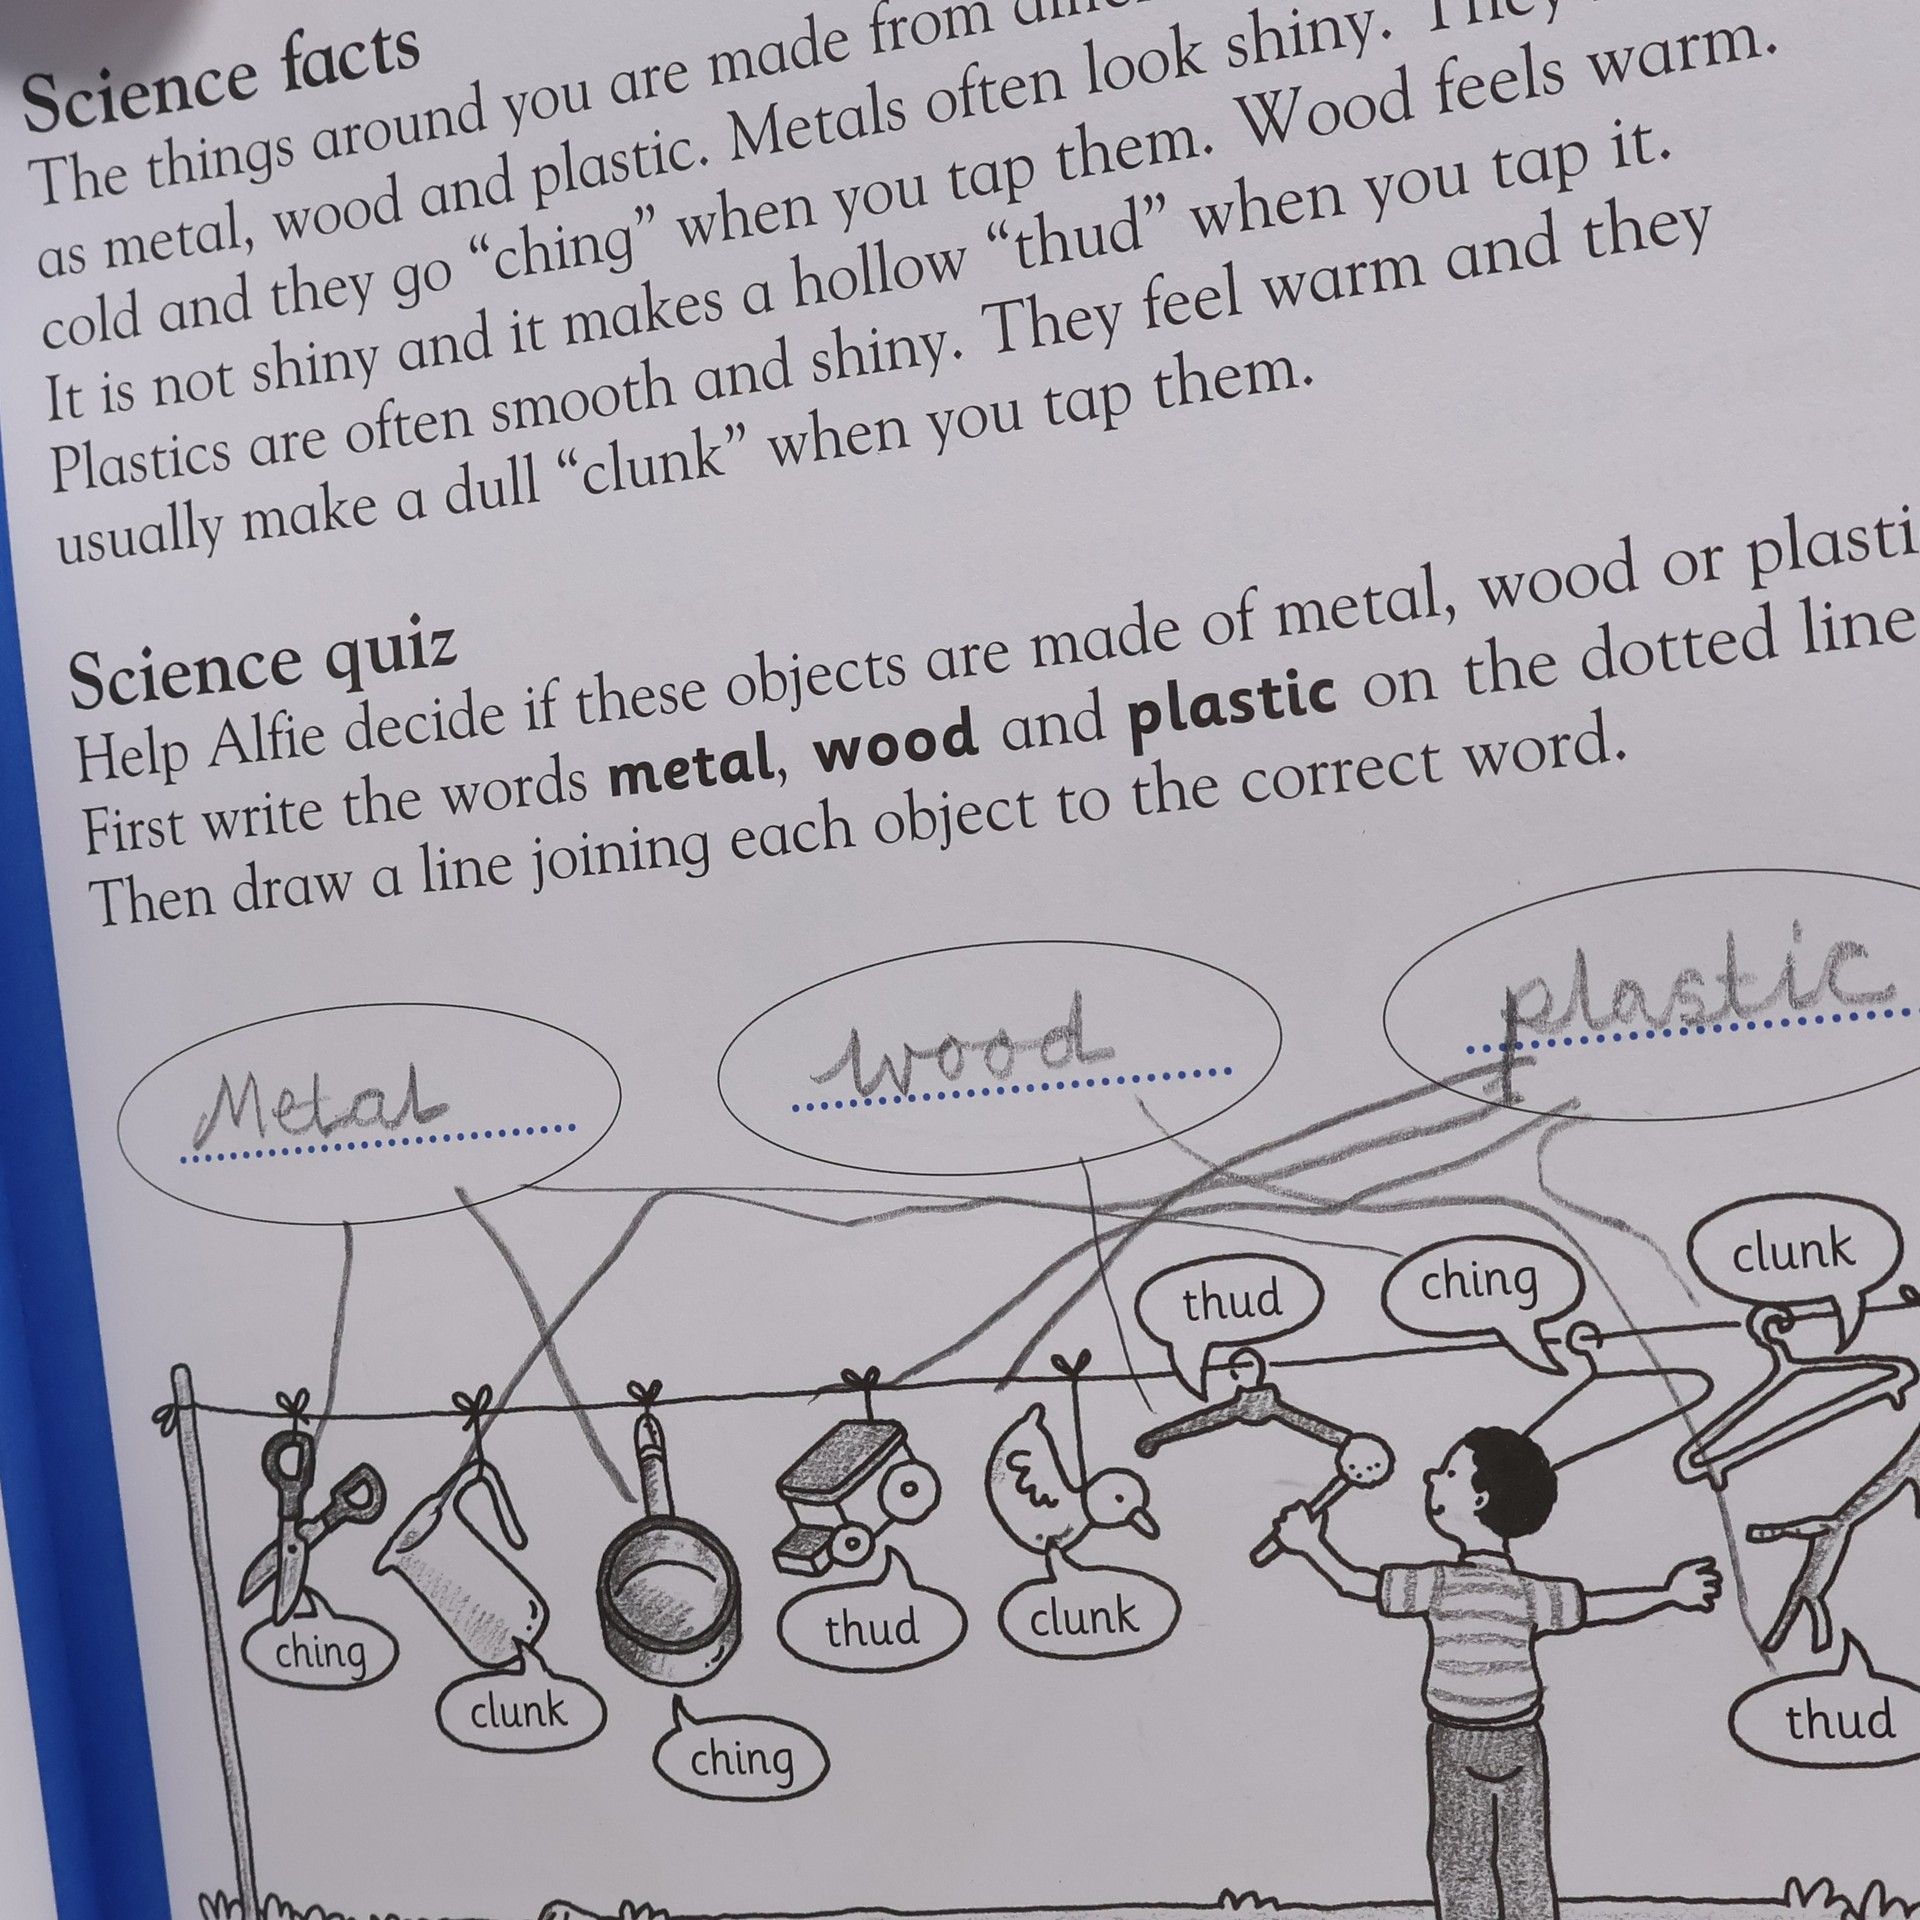 Science facts
The things around you are made from
as metal, wood and plastic. Metals often look shiny. They
cold and they go “ching” when you tap them. Wood feels warm.
It is not shiny and it makes a hollow “thud” when you tap it.
Plastics are often smooth and shiny. They feel warm and they
usually make a dull “clunk” when you tap them.
Science quiz
Help Alfie decide if these objects are made of metal, wood or plasti
First write the words metal, wood and plastic on the dotted line
Then draw a line joining each object to the correct word.
Metal
wood
plastic
thud
ching
clunk
ching
clunk
ching
thud
clunk
thud